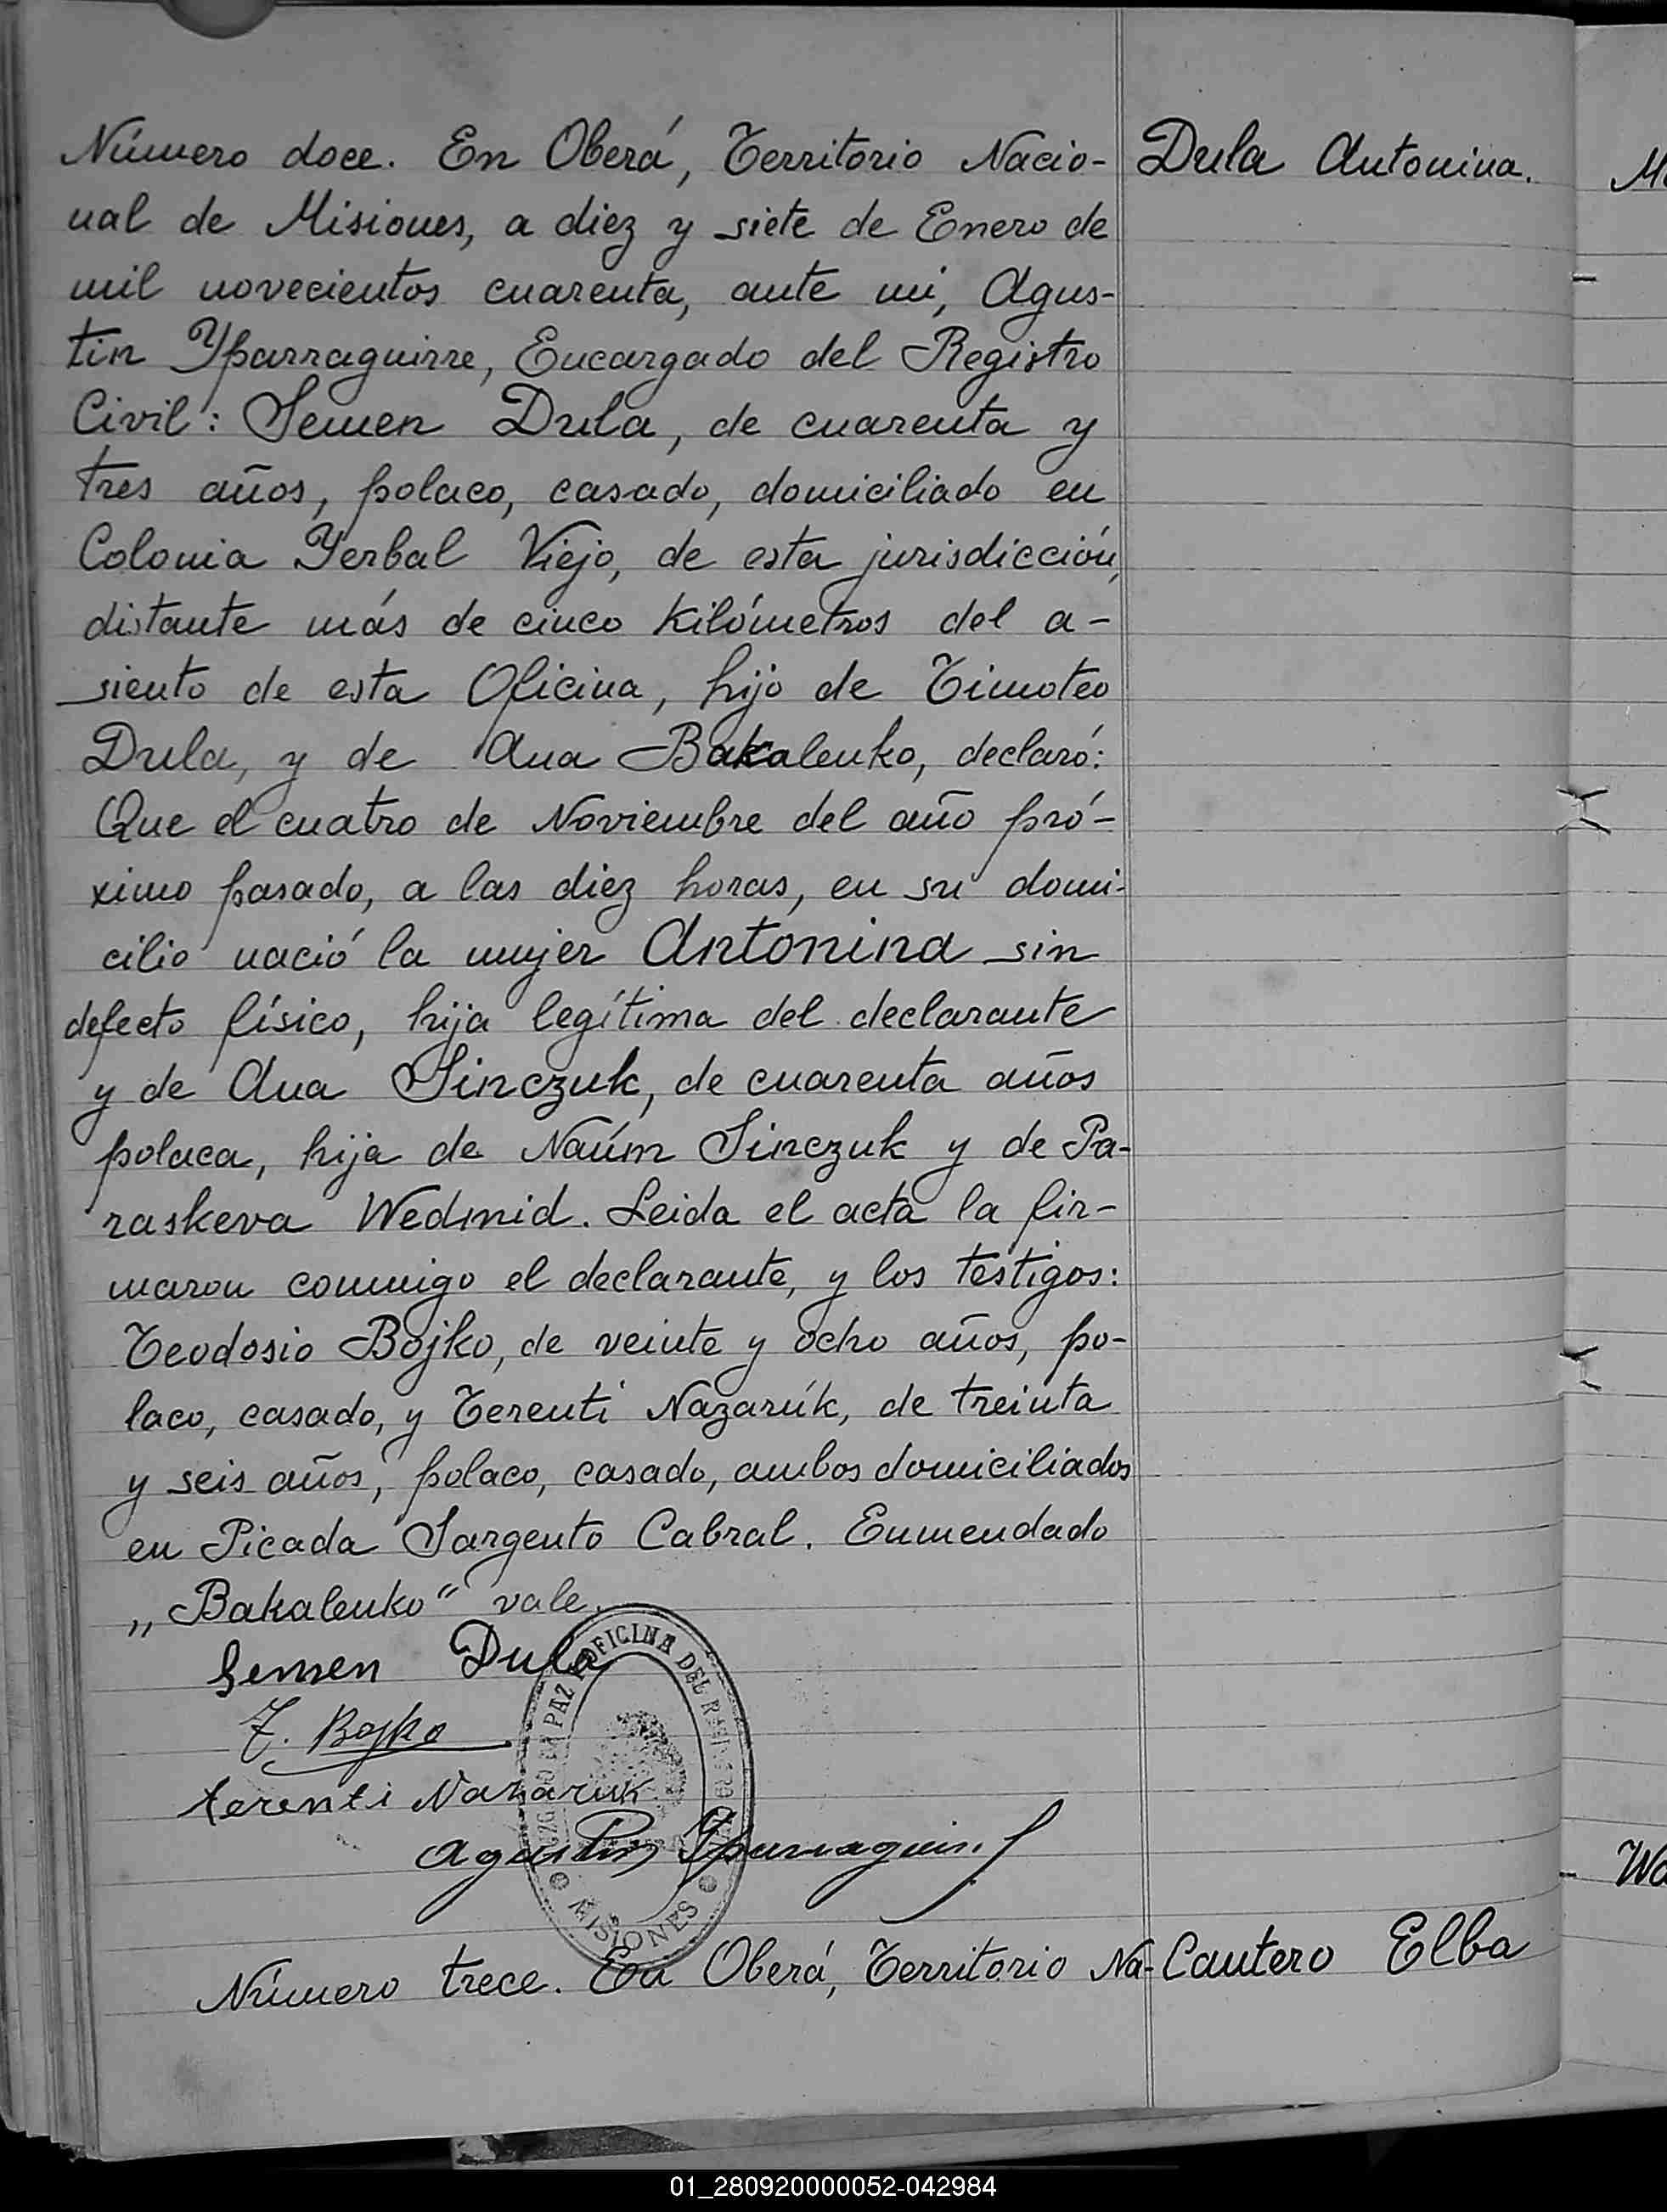 Número doce. En Oberá, Territorio Nacio-
Dula Antonina.
nal de Misiones, a diez y siete de Enero de
mil novecientos cuarenta, ante mi, Agus-
tin Yparraguirre, Encargado del Registro
Civil: Semen Dula, de cuarenta y
tres años, polaco, casado, domiciliado en
Colonia Yerbal Viejo, de esta jurisdicción,
distante más de cinco kilómetros del a-
siento de esta Oficina, hijo de Timoteo
Dula, y de Ana Bakalenko, declaró:
Que el cuatro de Noviembre del año pró-
ximo pasado, a las diez horas, en su domi-
cilio nació la mujer Antonina sin
defecto físico, hija legítima del declarante
y de Ana Sinczuk, de cuarenta años
polaca, hija de Naúm Sinczuk y de Pa-
raskeva Wedmid. Leida el acta la fir-
maron conmigo el declarante, y los testigos:
Teodosio Bojko, de veinte y ocho años, po-
laco, casado, y Terenti Nazarúk, de treinta
y seis años, polaco, casado, ambos domiciliados
en Picada Sargento Cabral. Enmendado
„Bakalenko" vale.
Semen Dula
T. Bojko
terenti Nazaruk
Agustin Yparraguirre
OFICINA DEL
PAZ
MISIONES
Número trece. En Oberá, Territorio Na-
Cantero Elba
01_280920000052-042984